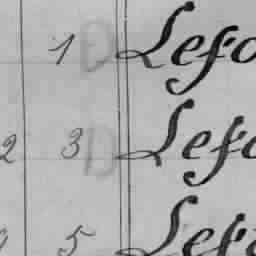 1 D Lefo
2 3 D Lefo
5 Lefo